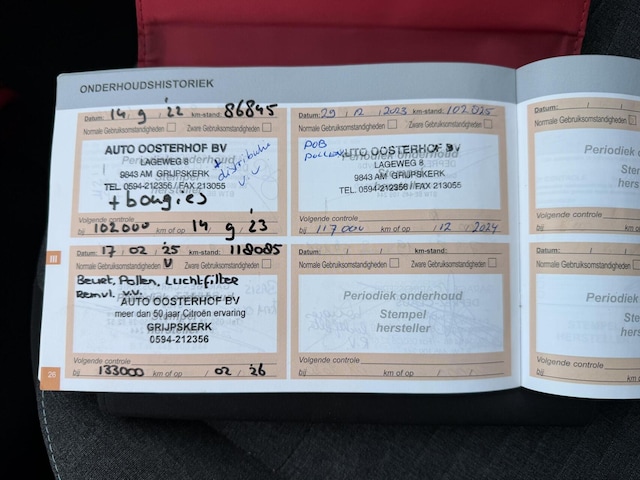 ONDERHOUDSHISTORIEK
Datum: 14 / 9 / 22 86845
Normale Gebruiksomstandigheden Zware Gebruiksomstandigheden
AUTO OOSTERHOF BV
Periodiek onderhoud
LAGEWEG 8
Stempel
9843 AM GRIJPSKERK
TEL. 0594-212356 / FAX 213055
hersteller
+ distributie
v.v
+ bougies
Volgende controle
bij 102000 14 / 9 / 23
Datum: 29 / 12 / 2023 km-stand: 102025
Normale Gebruiksomstandigheden Zware Gebruiksomstandigheden
POB
pollen
AUTO OOSTERHOF BV
Periodiek onderhoud
LAGEWEG 8
Stempel
9843 AM GRIJPSKERK
TEL. 0594-212356 / FAX 213055
hersteller
Volgende controle
bij 117000 km of op / 12 / 2024
Datum:
Normale Gebruiksomstandigheden
Periodiek
Stem
herste
Volgende controle
bij
III
Datum: 17 / 02 / 25 km-stand: 118085
Normale Gebruiksomstandigheden v Zware Gebruiksomstandigheden
Beurt, Pollen, Luchtfilter
Remvl. v.v.
AUTO OOSTERHOF BV
meer dan 50 jaar Citroën ervaring
Stempel
GRIJPSKERK
hersteller
0594-212356
Volgende controle
bij 133000 km of op / 02 / 26
Datum: / / km-stand:
Normale Gebruiksomstandigheden Zware Gebruiksomstandigheden
Periodiek onderhoud
Stempel
hersteller
Volgende controle
bij km of op / /
Datum:
Normale Gebruiksomstandigheden
Periodiek
Stem
herste
Volgende controle
bij
26